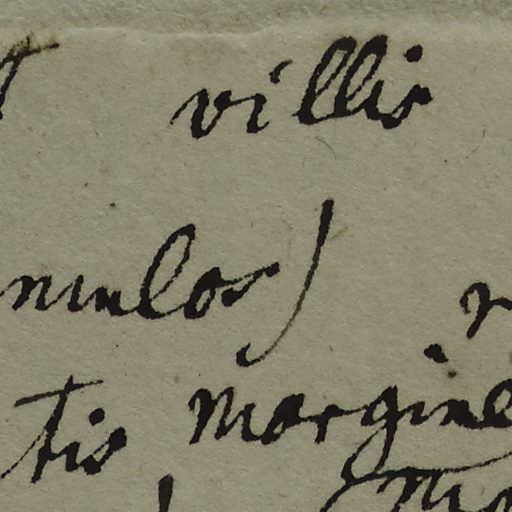 villis
nulos)
tis margine